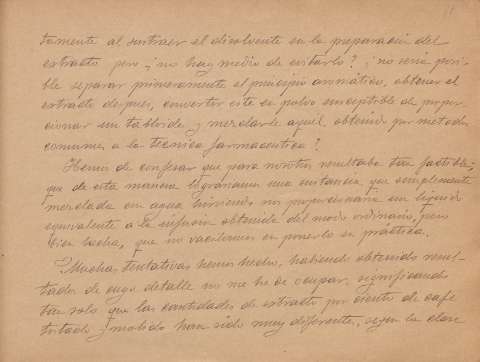 tamente al sustraer el disolvente en la preparación del
extracto pero ¿no hay medio de evitarlo? ¿no seria posi-
ble separar primeramente el principio aromático, obtener el
extracto despues, convertir este en polvo susceptible de propor-
cionar un tabloide y mezclarle aquel, obtenido por metodos
comunes a la tecnica farmaceutica?
Hemos de confesar que para nosotros resultaba tan factible,
que de esta manera lograriamos una sustancia que simplemente
mezclada con agua hirviendo nos proporcionaria un liquido
equivalente a la infusion obtenida del modo ordinario, pero
bien hecha, que no vacilamos en ponerlo en práctica.
Muchas tentativas hemos hecho, habiendo obtenido resul-
tados de cuyo detalle no me he de ocupar, significando
tan solo que las cantidades de extracto por ciento de café
tostado y molido han sido muy diferentes, segun la clase